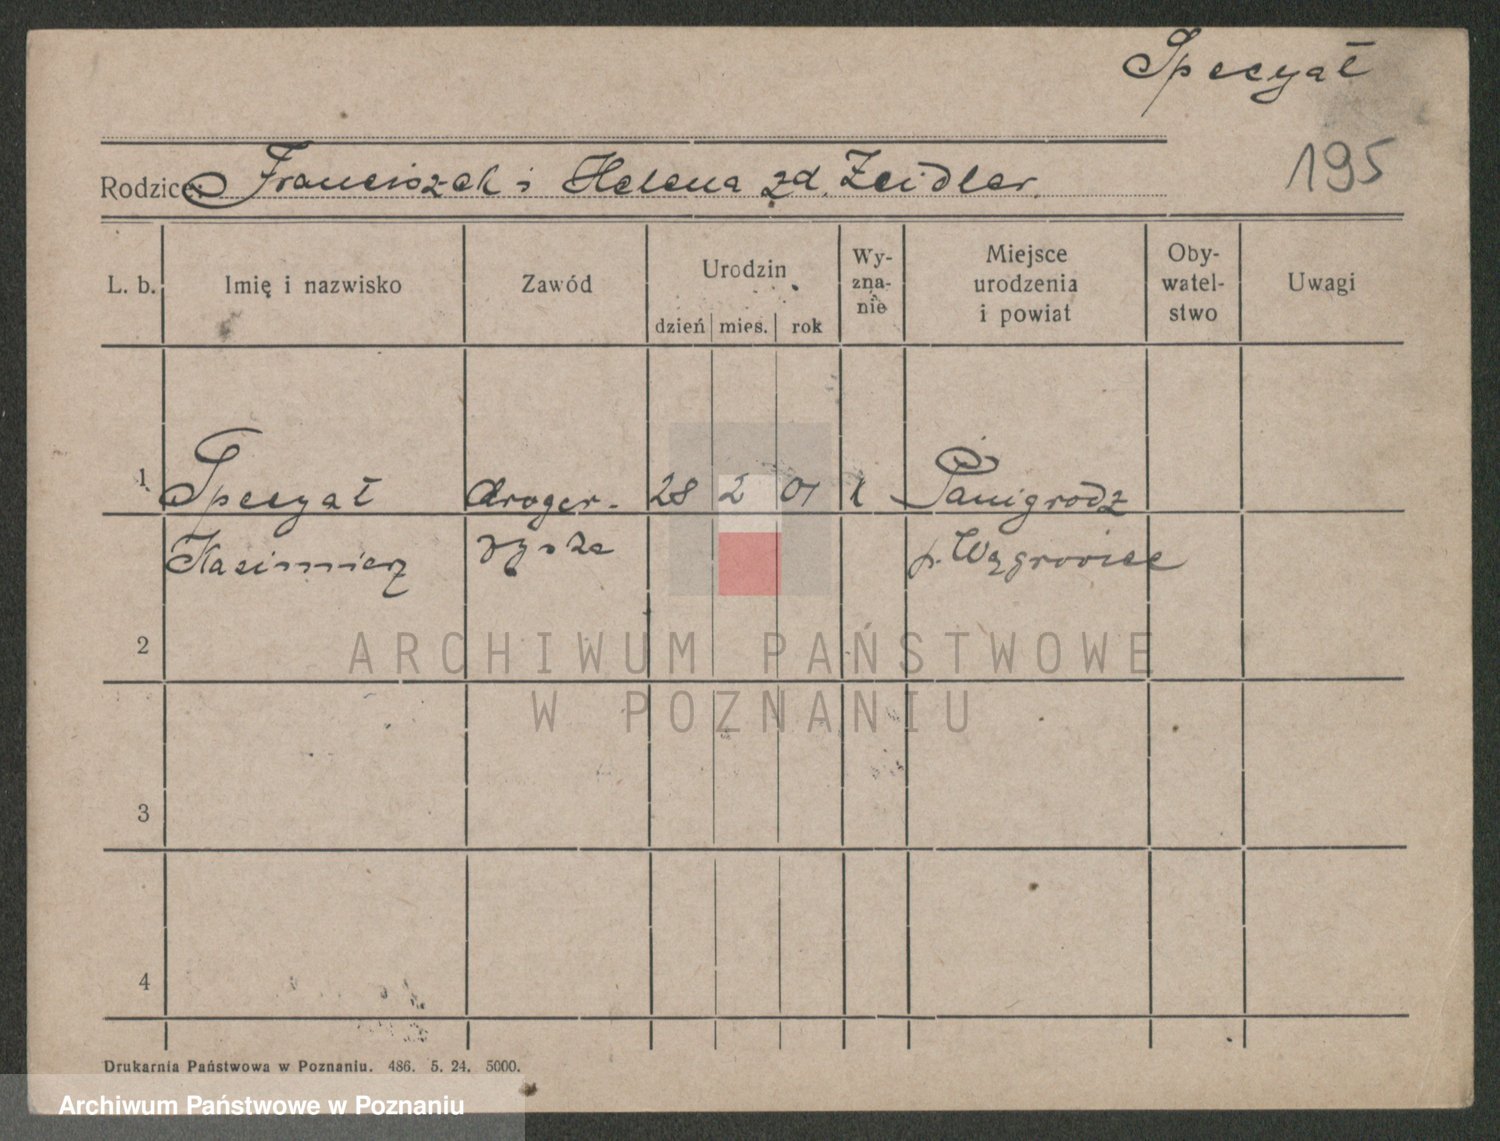 Specyał
195
Rodzice: Franciszek i Helena zd. Zeidler.
L. b.
Imię i nazwisko
Zawód
Urodzin
dzień mies. rok
Wy-
zna-
nie
Miejsce
urodzenia
i powiat
Oby-
watel-
stwo
Uwagi
1 Specyał droger- 28 2 01 k Panigrodz
Kazimierz p. Wągrowiec
2
ARCHIWUM PAŃSTWOWE
W POZNANIU
3
4
Drukarnia Państwowa w Poznaniu. 486. 5. 24. 5000.
Archiwum Państwowe w Poznaniu